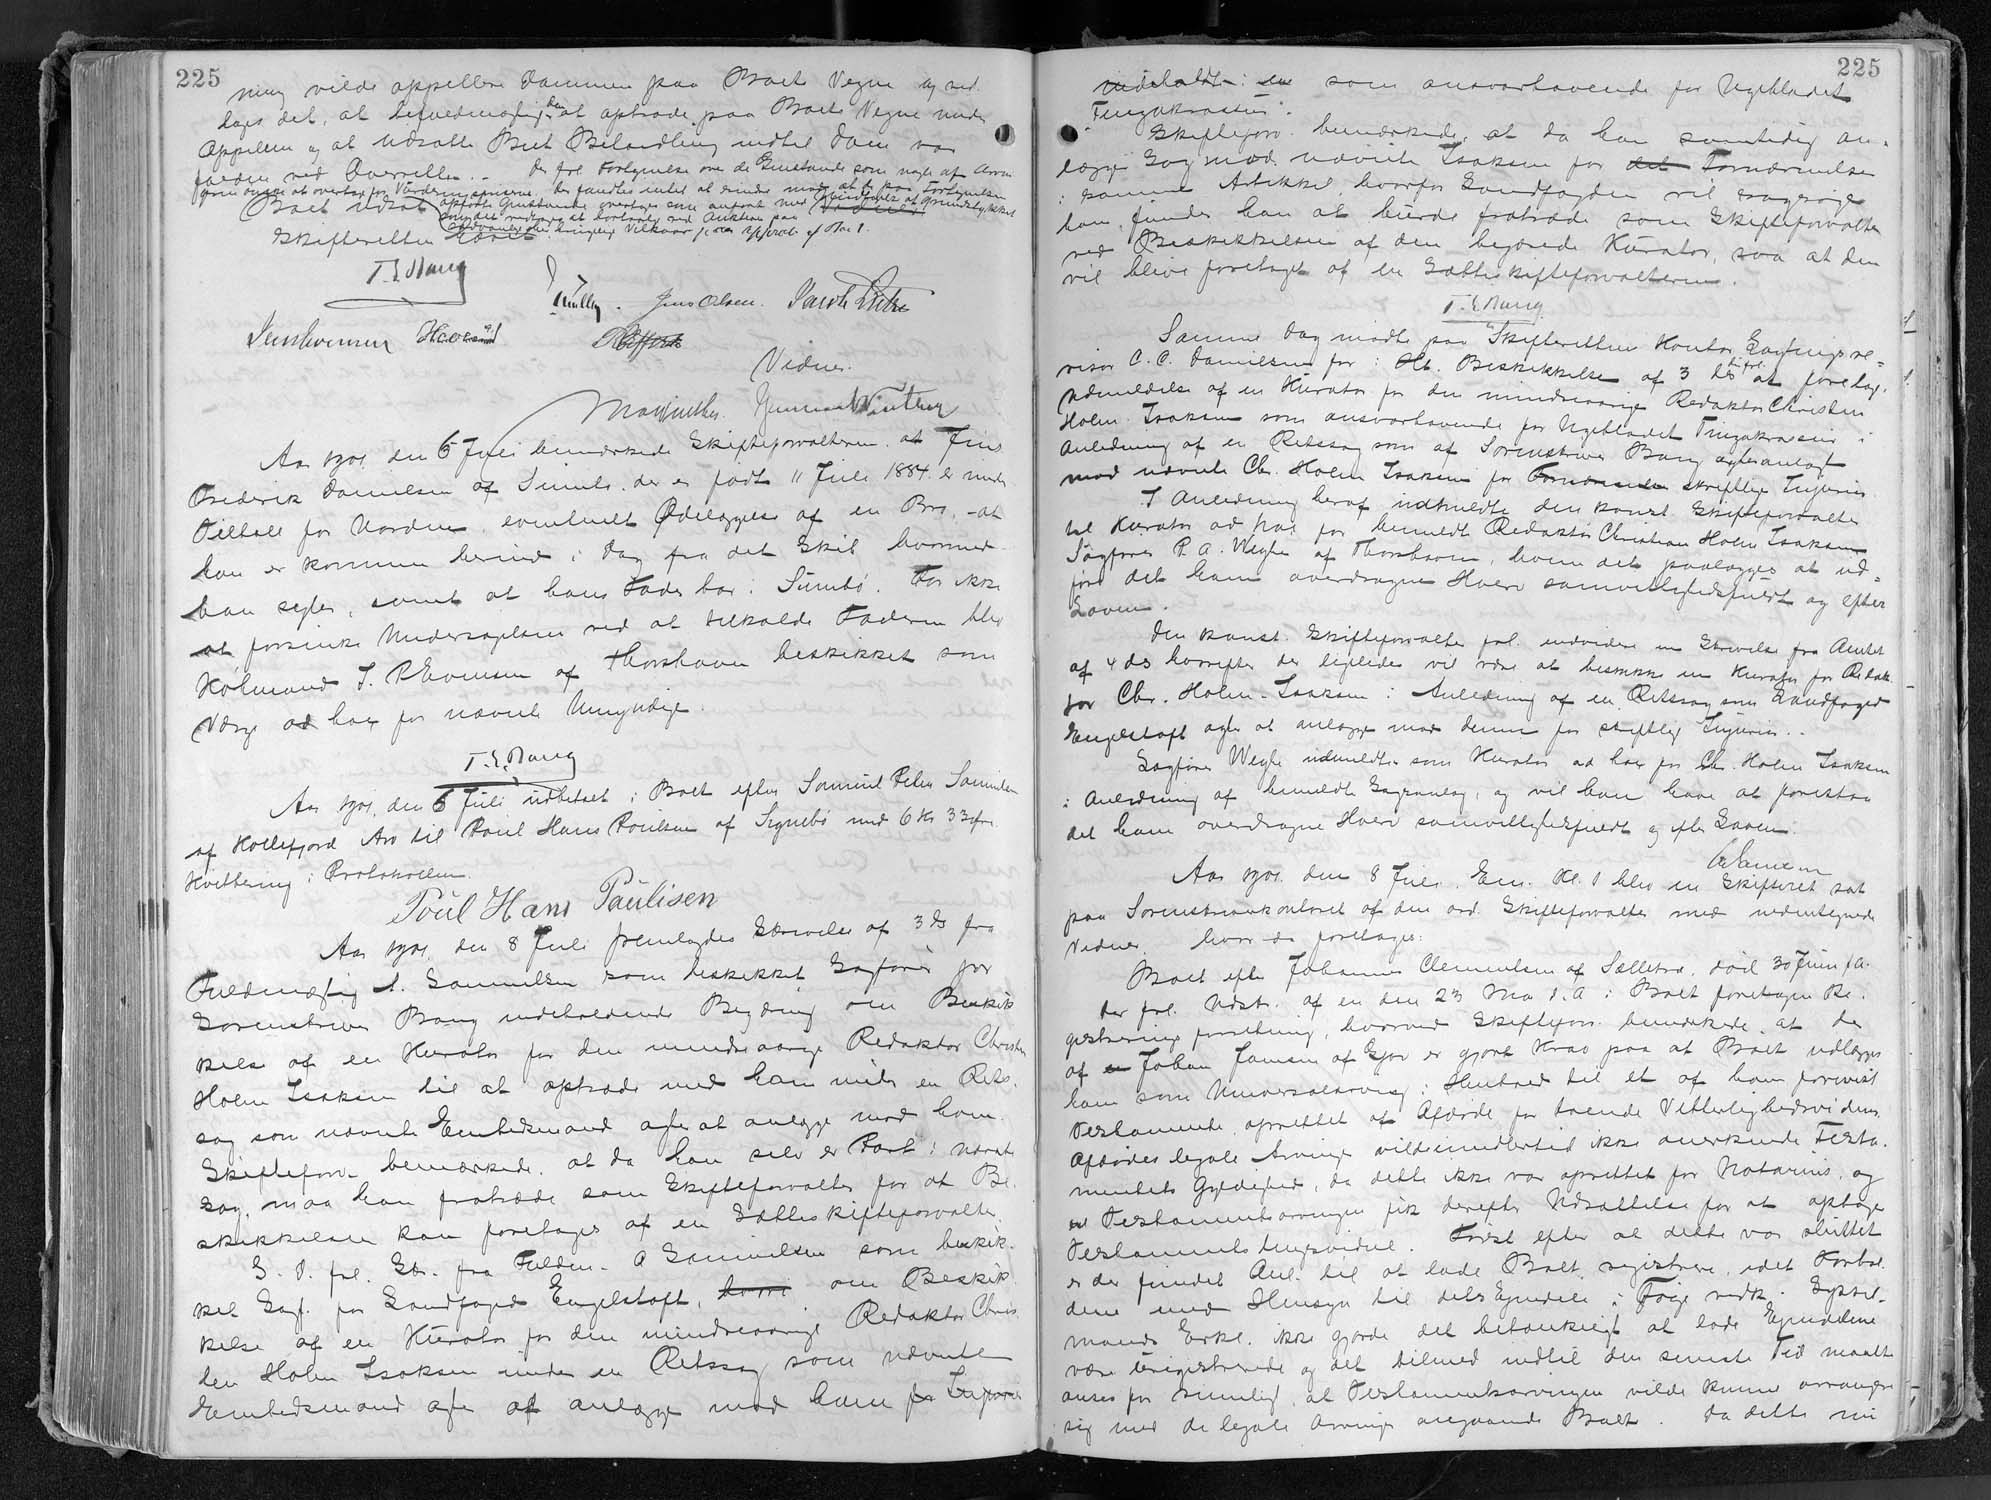 225
ning vilde appellere Dommen paa Boets Vegne og ved
toges det, at befuldmægtige den at optræde paa Boets Vegne under
Appellen og at udsætte Boets Behandling indtil Dom var
falden ved Overretten. - Der frl. Fortegnelse over de Genstande som nogle af Arvin
gerne ønske at overtage for Vurderingssummerne. Der fandtes intet at erindre mod at de paa Fortegnelsen
opførte Genstande overtages som anført med
Boet udsat
sædvanlige Vilkaar
Skifteretten hævet.
T. S. Bang
Müller. Jens Olsen. Jacob Lütze
Jens Evensen
Vidner.
Aar 1901, den 6 Juli bemærkede Skifteforvalteren at Jens
Frederik Danielsen af Sumbø, der er født 11 Juli 1884 er under
Tiltale for Vorden eventuelt Ødelæggelse af en Bro, at
han er kommen herind i Dag fra det Skib hvormed
han sejler, samt at hans Fader bor i Sumbø. For ikke
at forsinke Undersøgelsen ved at tilkalde Faderen blev
Kølmand J. P. Evensen af Thorshavn beskikket som
Værge ad hoc for nævnte Umyndige.
T. S. Bang
Aar 1901, den 6 Juli udbetalt i Boet efter Samuel Peter Samuelsen
af Kollefjord Arv til Poul Hans Poulsen af Signebø med 6 Kr 33 Øre.
Kvittering i Protokollen.
Póul Hans Paulisen
Aar 1901, den 8 Juli fremlagdes Skrivelse af 3 ds fra
Fuldmægtig A. Samuelsen som beskikket Sagfører for
Sorenskriver Bang indeholdende Begæring om Beskik
kelse af en Kurator for den mindreaarige Redaktør Christen
Holm Isaksen til at optræde med ham under en Rets-
sag som nævnte Embedsmand agter at anlægge mod ham.
Skifteforv. bemærkede, at da han selv er Part i nævnte
Sag, maa han fratræde som Skifteforvalter for at Be-
skikkelsen kan foretages af en Sætteskifteforvalter.
S. D. frl. Skr. fra Fuldm. A Samuelsen som beskik-
ket Sagf. for Landfoged Engelstoft, om Beskik
kelse af en Kurator for den mindreaarige Redaktør Chris
ten Holm Isaksen under en Retssag som nævnte
Embedsmand agter at anlægge mod ham for Injurier
225
indeholdt i en som ansvarhavende for Ugebladet
"Fuglaframi".
Skifteforv. bemærkede, at da han samtidig an-
lægger Sag mod nævnte Isaksen for det Fornærmelser
i samme Artikkel, hvorfor Landfogden vil sagsøge
ham, finder han at burde fratræde som Skifteforvalter
ved Beskikkelsen af den begærede Kurator, saa at den
vil blive foretaget af en Sætteskifteforvalteren.
T. S. Bang
Samme Dag mødte paa Skifteretten Kontor Lagtingsre-
visor C. C. Danielsen for i Hh. Beskikkelse af 3 ds at foretage
Udmeldelse af en Kurator for den mindreaarige Redaktør Christen
Holm Isaksen som ansvarhavende for Ugebladet Fuglaframi i
Anledning af en Retssag som af Sorenskriver Bang agtes anlagt
mod nævnte Chr. Holm Isaksen for skriftlige Injurier
I Anledning heraf udmeldte den konst. Skifteforvalter
til Kurator ad hoc for bemeldt Redaktør Christian Holm Isaksen
Sagfører P. A. Weyhe af Thorshavn, hvem det paalægges at ud-
føre det ham overdragne Hverv samvittighedsfuldt og efter
Loven.
Den konst. Skifteforvalter frl. endvidere en Skrivelse fra Amtet
af 4 ds hvorefter der ligeledes vil være at beskikke en Kurator for Redak
tør Chr. Holm-Isaksen i Anledning af en Retssag som Landfoged
Engelstoft agter at anlægge mod denne for skriftlig Injurier.
Sagfører Weyhe udmeldtes som Kurator ad hoc for Chr. Holm Isaksen
i Anledning af bemeldt Sagsanlæg, og vil han have at forestaa
det ham overdragne Hverv samvittighedsfuldt og efter Loven.
Aar 1901, den 8 Juli, Em. Kl. 1 blev en Skifteret sat
paa Sorenskriverkontoret af den ord. Skifteforvalter med undertegnede
Vidner, hvor da foretages:
Boet efter Johanne Clementsen af Selletræ, død 30 Juni f. A.
Der frl. Udskr. af en den 23 Maj d. A. i Boet foretagen Re-
gistreringsforretning, hvorved Skifteforv. bemærkede, at der
af Johan Jansen af Gjov er gjort Krav paa at Boet udlægges
ham som Universalarving i Henhold til et af ham forevist
Testamente, oprettet af Afdøde for tvende Vitterlighedsvidner.
Afdødes legale Arvinger vilde imidlertid ikke anerkende Testa-
mentets Gyldighed, da dette ikke var oprettet for Notarius, og
Testamentsarvingen fik derefter Udsættelse for at optage
Testaments Tingsvidne. Først efter at dette var sluttet
er der fundet Anl. til at lade Boet registrere, idet Forhol-
dene med Hensyn til dets Ejendele i Følge vedk. Syssel-
mands Erkl. ikke gjorde det betænkeligt at lade Ejendelene
være uregistrerede og det tilmed indtil den seneste Tid maatte
anses for rimeligt, at Testamentsarvingen vilde kunne arrangere
sig med de legale Arvinger angaaende Boet. Da dette nu